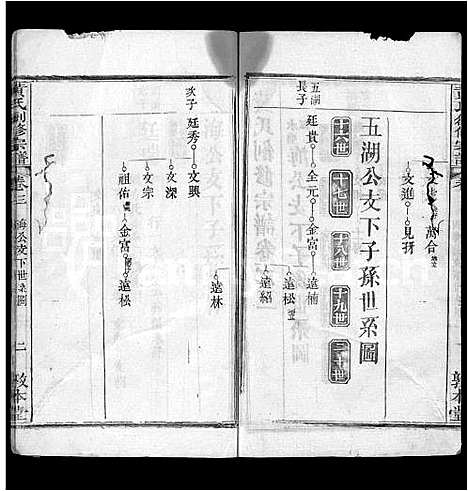 萬合
文進 見犽
五湖公支下子孫世系圖
十六世 十七世 十八世 十九世 二十世
五湖長子
廷貴 全元 金富 達楠
達松
達紹
達林
次子
廷秀 文興
文深
文宗
祖佑 金富 達松
黃氏創修宗譜 卷三 梅公支下世系圖 二 敦本堂
敦本堂